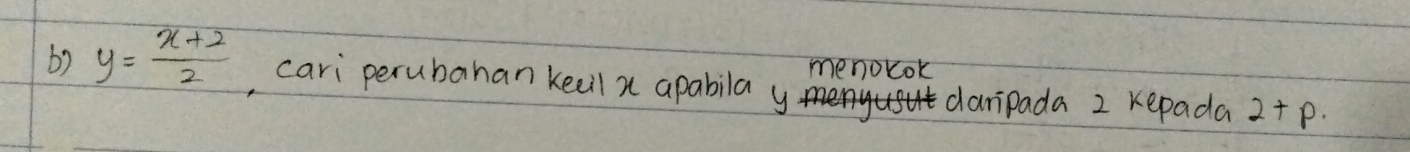 b) y = \frac{x+2}{2}, cari perubahan kecil x apabila y menokok ~~menyusut~~ daripada 2 kepada 2 + p.